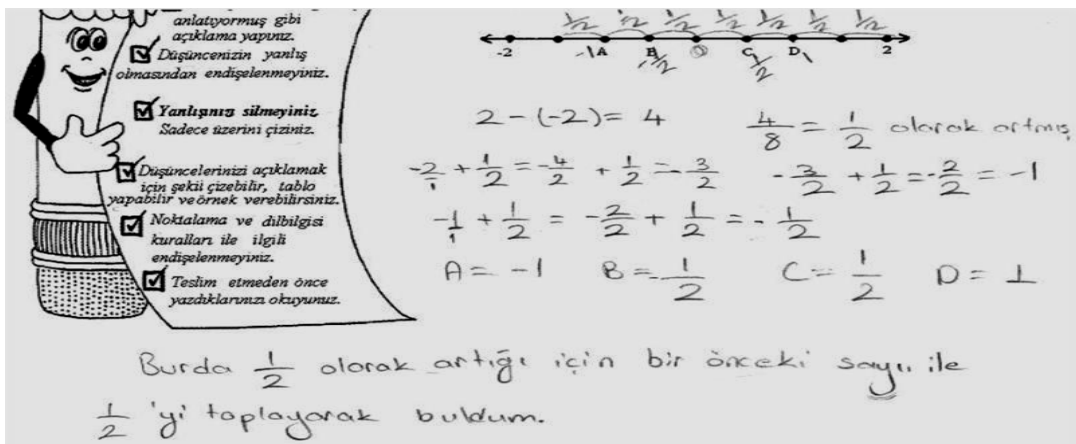 anlatıyormuş gibi
açıklama yapınız.
Düşüncenizin yanlış
olmasından endişelenmeyiniz.
Yanlışınızı silmeyiniz.
Sadece üzerini çiziniz.
Düşüncelerinizi açıklamak
için şekil çizebilir, tablo
yapabilir ve örnek verebilirsiniz.
Noktalama ve dilbilgisi
kuralları ile ilgili
endişelenmeyiniz.
Teslim etmeden önce
yazdıklarınızı okuyunuz.
1/2 1/2 1/2 1/2 1/2 1/2 1/2
-2 A B 0 C D 2
-1 -1/2 1/2 1
2-(-2)= 4 4/8 = 1/2 olarak artmış
-2/1 + 1/2 = -4/2 + 1/2 = -3/2 -3/2 + 1/2 = -2/2 = -1
-1/1 + 1/2 = -2/2 + 1/2 = -1/2
A = -1 B = -1/2 C = 1/2 D = 1
Burda 1/2 olarak artığı için bir önceki sayı ile
1/2 'yi toplayarak buldum.